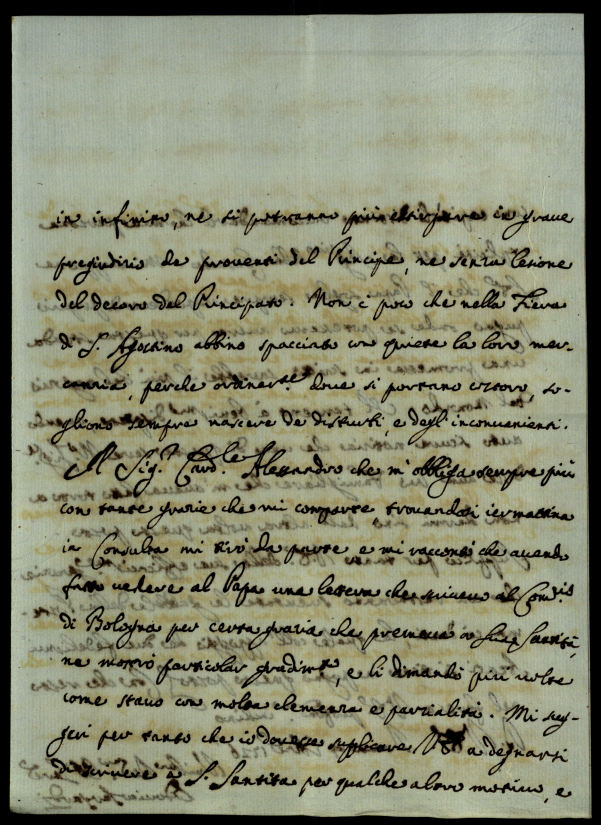 in infinito, ne si potranno più estirpare in grave
pregiudizio de proventi del Principe, ne senza lesione
del decoro del Principato. Non è poco che nella Fiera
di S. Agostino abbino spacciato con quiete la loro mer-
canzia, perche ordinar.te dove si portano costoro so-
gliono sempre nascere de disturbi, e degl' inconvenienti.
Il Sig.r Card.le Alessandro che m' obbliga sempre più
con tante grazie che mi comparte trovandosi iermattina
in Consulta mi tirò da parte e mi raccontò che avendo
fatto vedere al Papa una lettera che scrivevo al
di Bologna per certa grazia che premeva a Sua Santità,
ne mostrò particolar gradim.to, e li dimandò più volte
come stavo con molta clemenza e parzialità. Mi sug-
gerì per tanto che io dovessi supplicare a degnarsi
di scrivere a S. Santità per qualche altro motivo, e